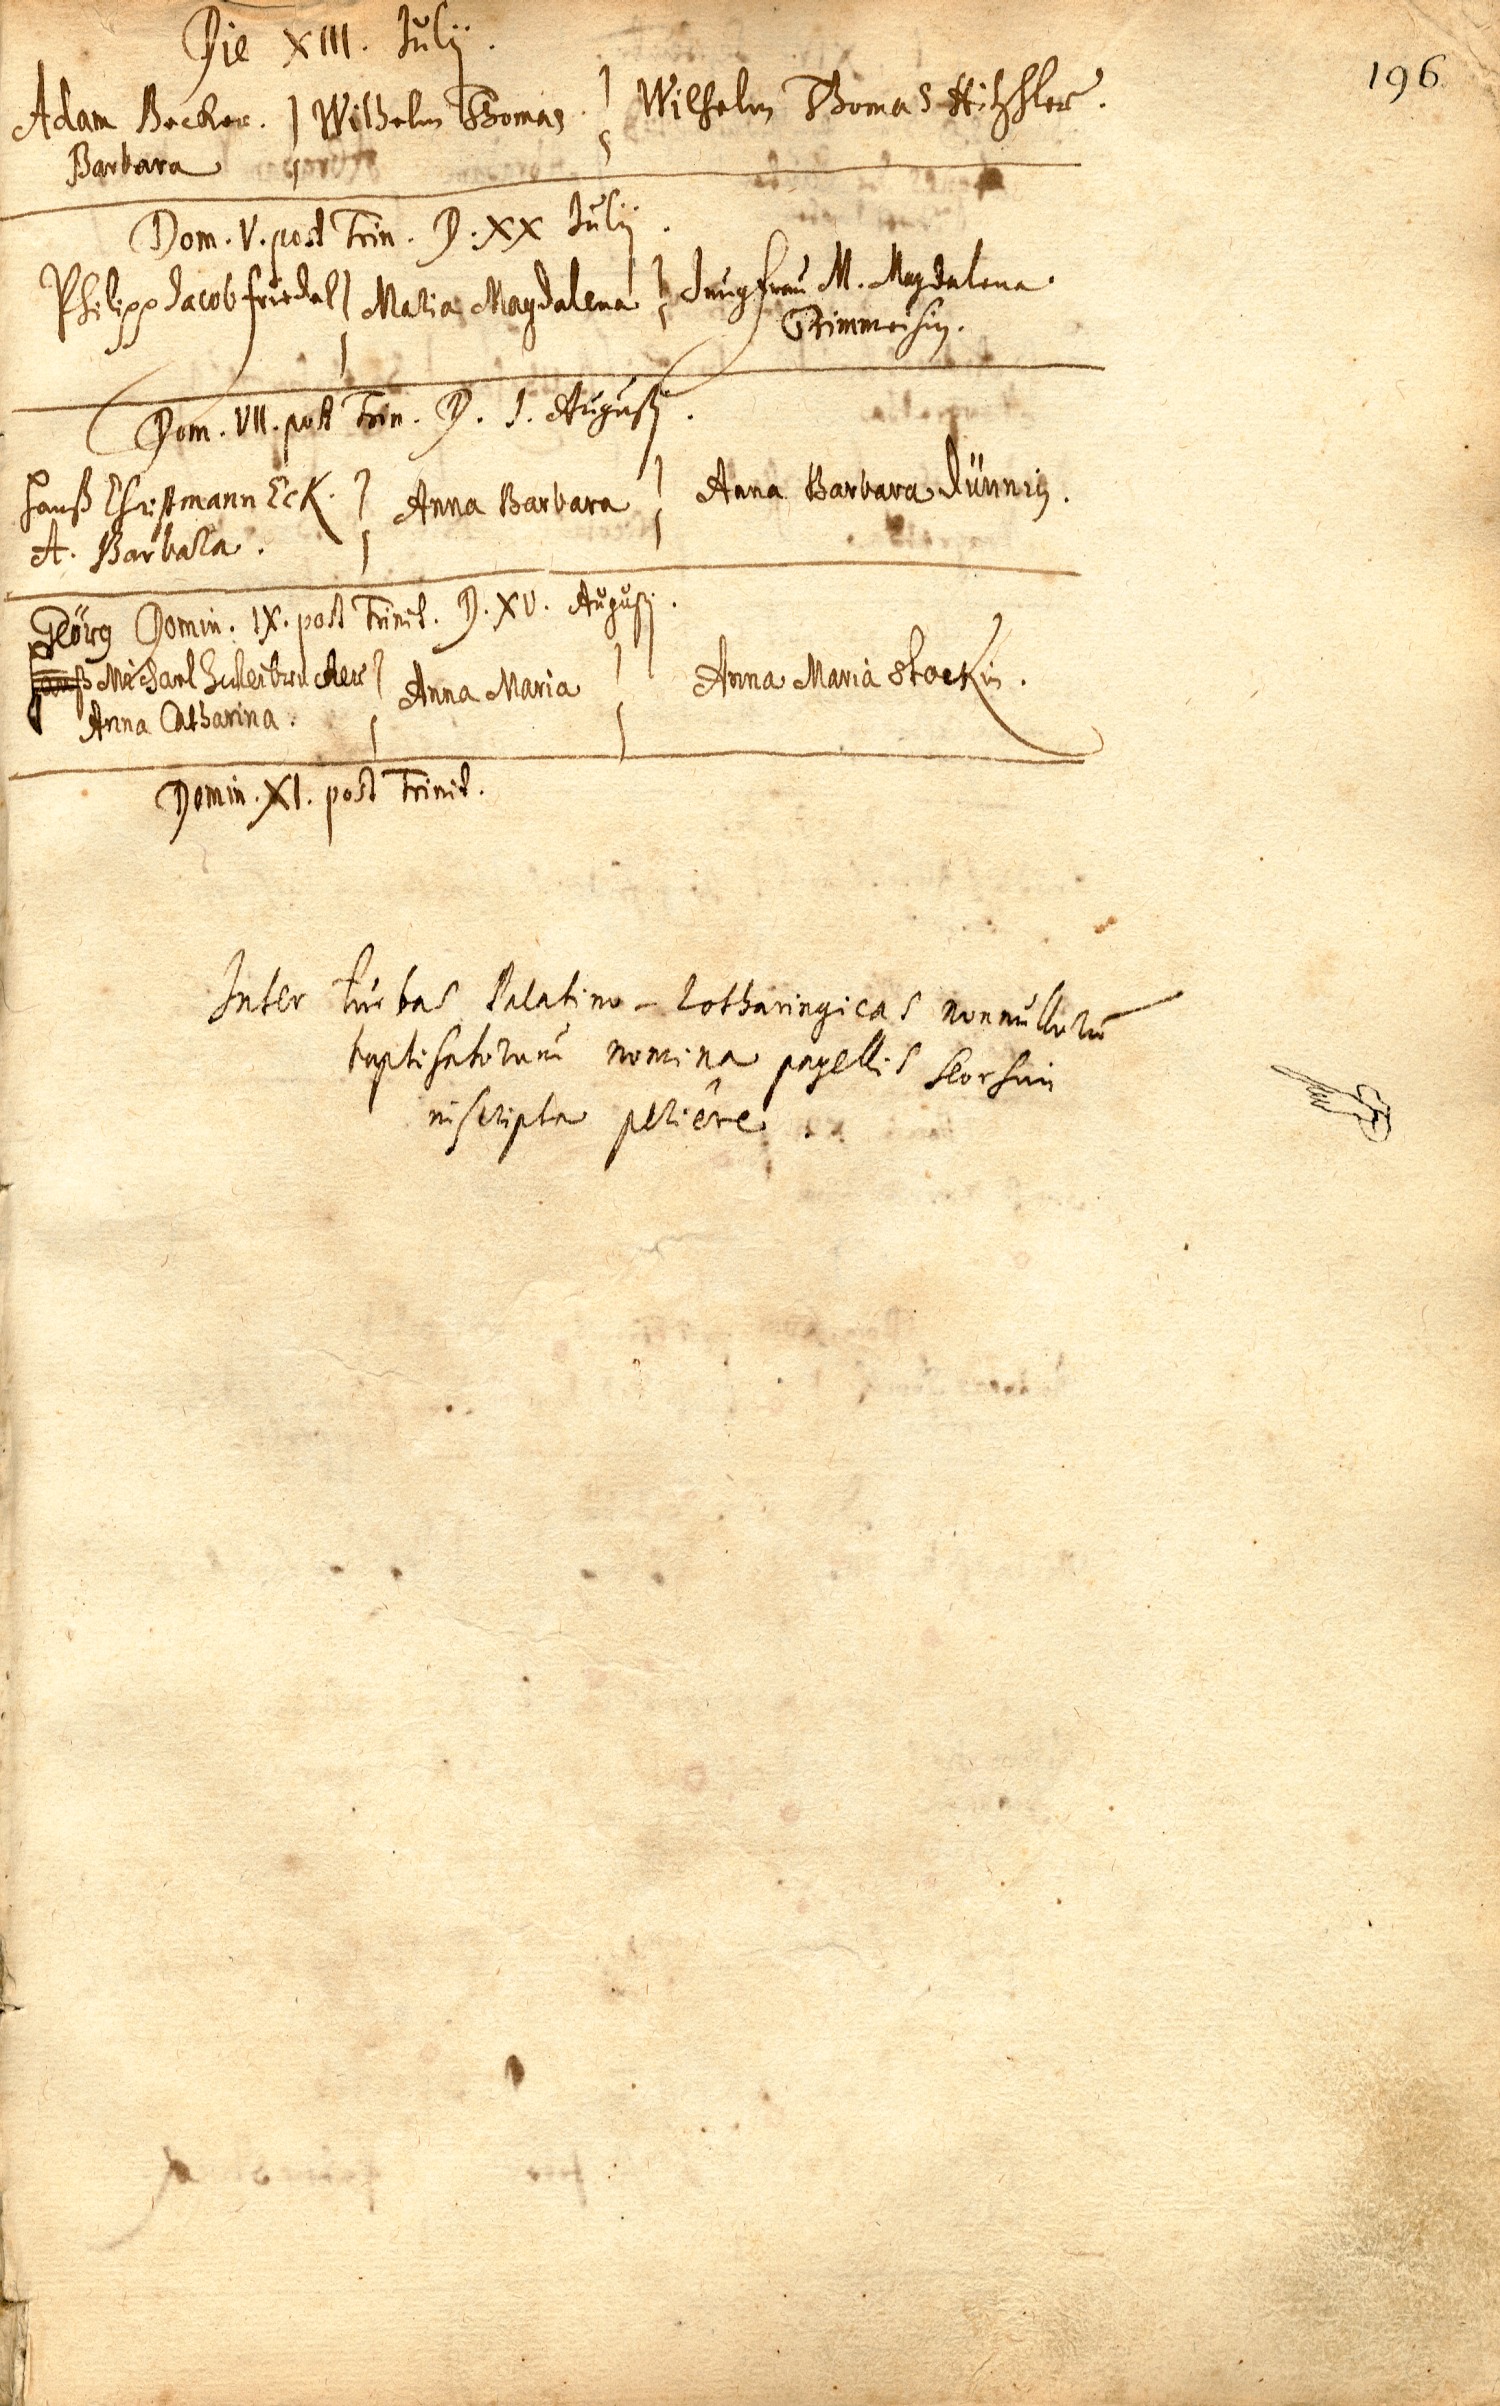 196
Die XIII. Julij.
Adam Becker. Wilhelm Thomas. Wilhelm Thomas Hitzhler.
Barbara
Dom. V. post Trin. D. XX Julij.
Philipp Jacob Friedel Maria Magdalena Jungfrau M. Magdalena
Grimmeisin.
Dom. VII. post Trin. D. 1. Augusti.
Hanß Christmann Eck. Anna Barbara Anna Barbara Dünnin.
A. Barbara.
Görg Domin. IX. post Trinit. D. XV. Augusti.
Hanß Michael Anna Maria Anna Maria Stockin.
Anna Catharina.
Domin. XI. post Trinit.
Inter turbas Palatino-Lotharingicas nonnullorū
baptisatorum nomina pagellis seorsim
inscripta periêre.